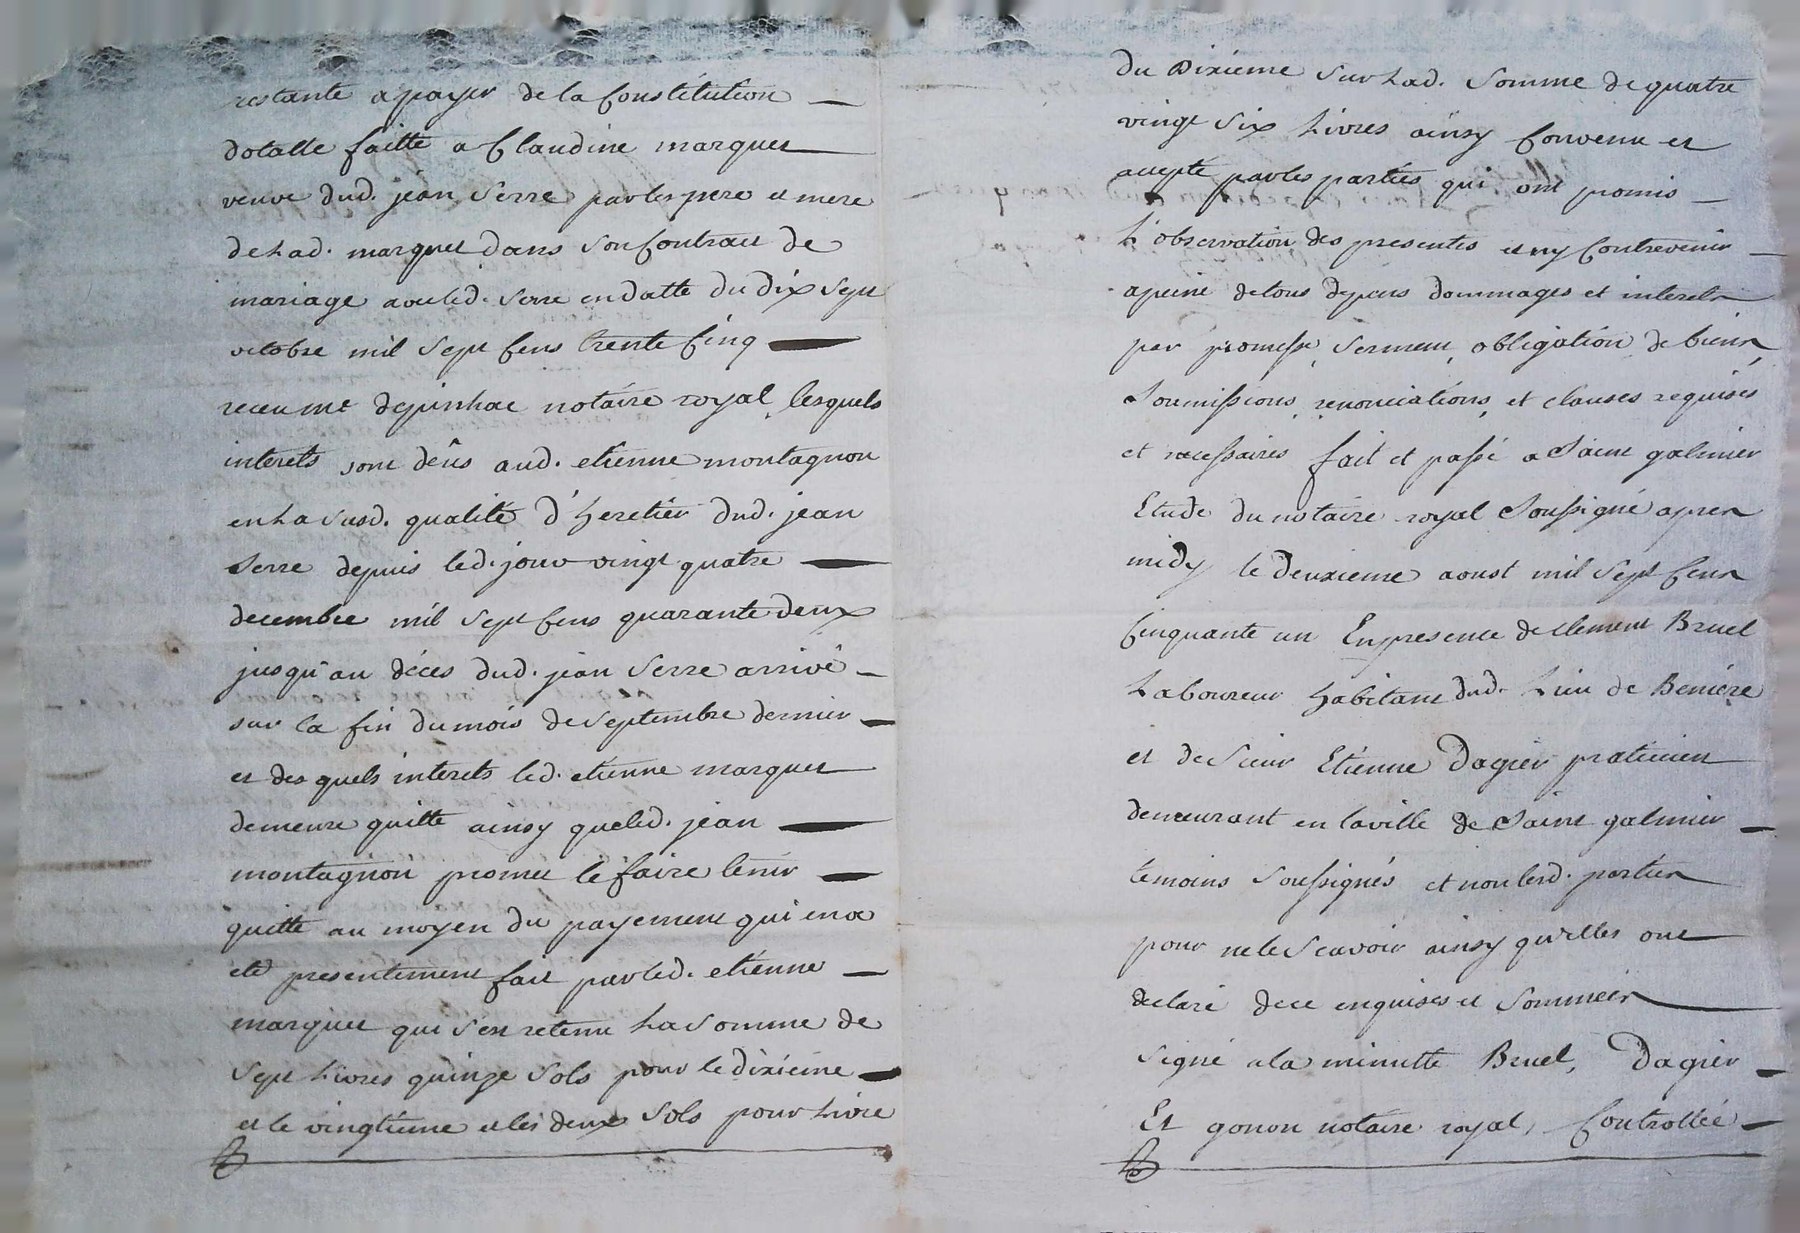 restante a payer de la Constitution
dotalle faitte a Claudine marquet
veuve dud. jean Serre par les pere et mere
de Lad. marquet dans son Contract de
mariage avec led. Serre en datte du dix sept
octobre mil Sept Cens trente Cinq
receu me depinhac notaire royal, lesquels
interets sont dêus aud. etienne montagnon
en La susd. qualité d'heretier dud. jean
Serre depuis led. jour vingt quatre
decembre mil Sept Cens quarante deux
jusqu'au déces dud. jean Serre arrivé
sur la fin du mois de Septembre dernier
et des quels interets led. etienne marquet
demeure quitte ainsy que led. jean
montagnon promet le faire tenir
quitte au moyen du payement qui en a
eté presentement fait par led. etienne
marquet qui s'est retenu La Somme de
Sept Livres quinze Sols pour le dixieme
et le vingtieme et les deux Sols pour Livre
du Dixieme Sur Lad. Somme de quatre
vingt Six Livres ainsy Convenu et
accepté par les parties qui ont promis
L'observation des presentes et ny Contrevenir
a peine de tous depens dommages et interets
par promesse, Serment, obligation de biens,
Soumissions, renonciations, et clauses requises
et necessaires fait et passé a Saint galmier
Etude du notaire royal Soussigné apres
midy le deuxieme aoust mil Sept Cens
Cinquante un En presence de Clement Bruel
Laboureur habitant dud. Lieu de Beniére
et de Sieur Etienne Dagier praticien
demeurant en la ville de Saint galmier
temoins Soussignés et non lesd. parties
pour ne le Scavoir ainsy qu'elles ont
declaré de ce enquises et Sommeés
Signé a la minutte Bruel, Dagier
Et gonon notaire royal, Controllée